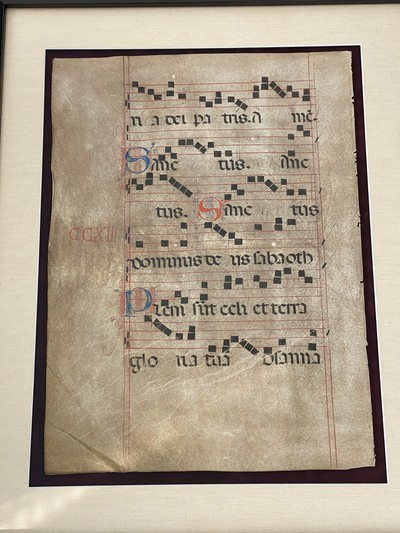 ri a dei pa tris. A mē.
Sanc tus. Sanc
tus. Sanc tus
dominus de us sabaoth
Pleni sūt celi et terra
glo ria tua osanna